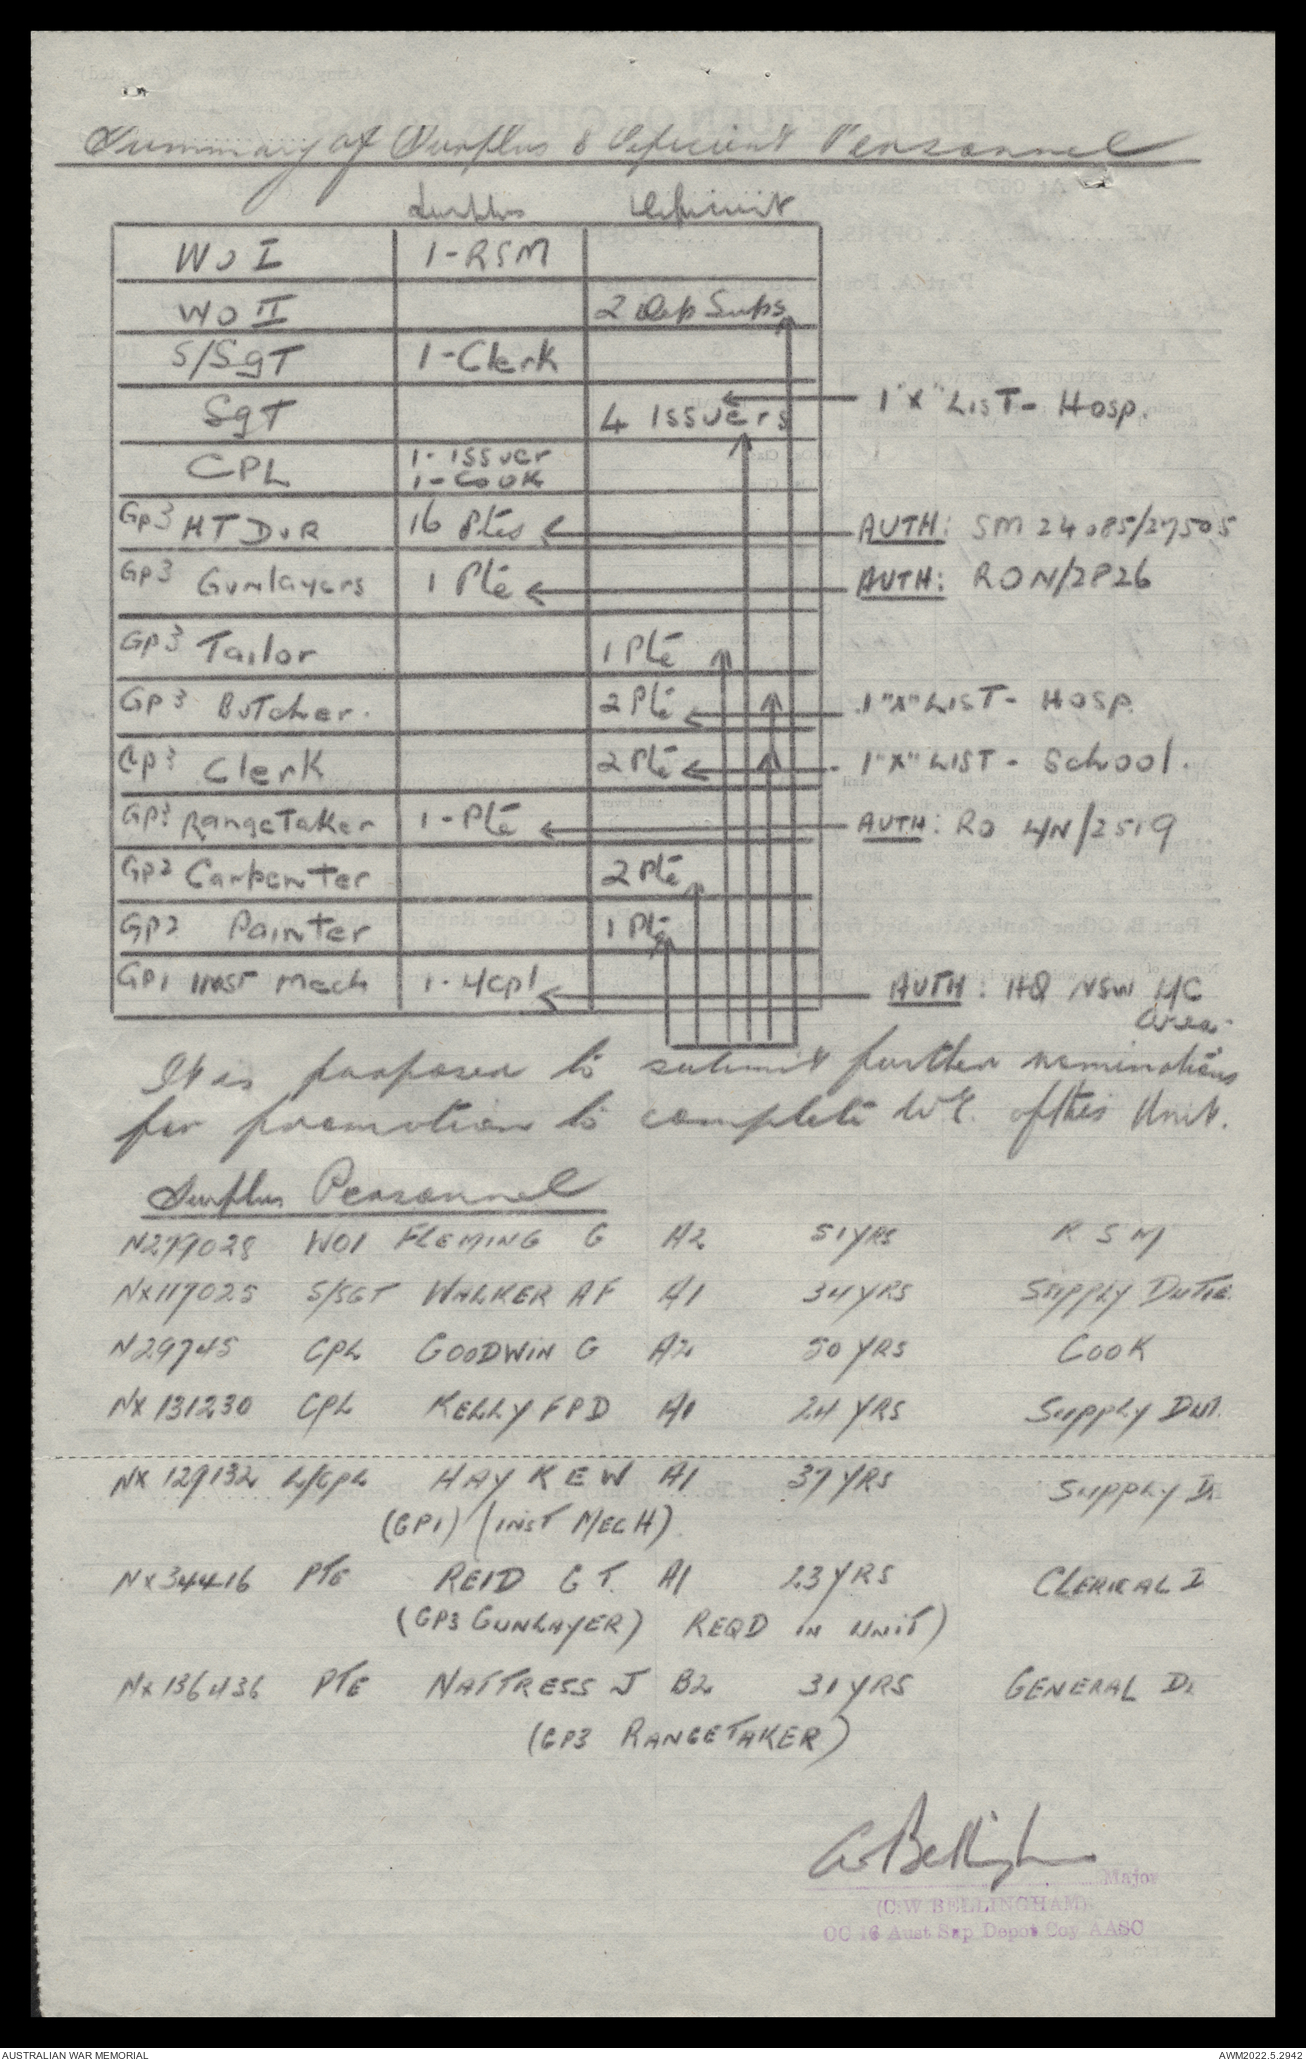 Summary of Surplus & Deficient Personnel
Surplus Deficient
WO I 1-RSM
WO II 2 Dep Sups
S/SgT 1-Clerk
SgT 4 Issuers 1 "X" LIST - Hosp.
CPL 1-Issuer
1-Cook
Gp3 HT DvR 16 Ptes AUTH: SM 24085/27505
Gp3 Gunlayers 1 Pte AUTH: RO N/2826
Gp3 Tailor 1 Pte
Gp3 Butcher. 2 Pte 1 "X" LIST - HOSP.
Gp3 Clerk 2 Pte 1 "X" LIST - School.
Gp3 RangeTaker 1-Pte AUTH: RO L/N/2519
Gp2 Carpenter 2 Pte
Gp2 Painter 1 Pte
GP1 Inst Mech 1-L/Cpl AUTH: HQ NSW L/C
Area.
It is proposed to submit further nominations
for promotion to complete W.E. of this Unit.
Surplus Personnel
N279028 WO1 FLEMING G A2 51 YRS R S M
NX117025 S/SGT WALKER AF A1 34 YRS SUPPLY DUTIE
N29745 CPL GOODWIN G A2 50 YRS COOK
NX131230 CPL KELLY FPD A1 24 YRS SUPPLY DUT.
NX129132 L/CPL HAY K E W A1 37 YRS SUPPLY D
(GP1) (INST MECH)
NX34416 PTE REID G T. A1 23 YRS CLERICAL D
(GP3 GUNLAYER) REQD IN UNIT)
NX136436 PTE NATTRESS J B2 31 YRS GENERAL D
(GP3 RANGETAKER)
CW Bellingham
Major
(C.W. BELLINGHAM)
OC 16 Aust Sup Depot Coy AASC
AUSTRALIAN WAR MEMORIAL AWM2022.5.2942